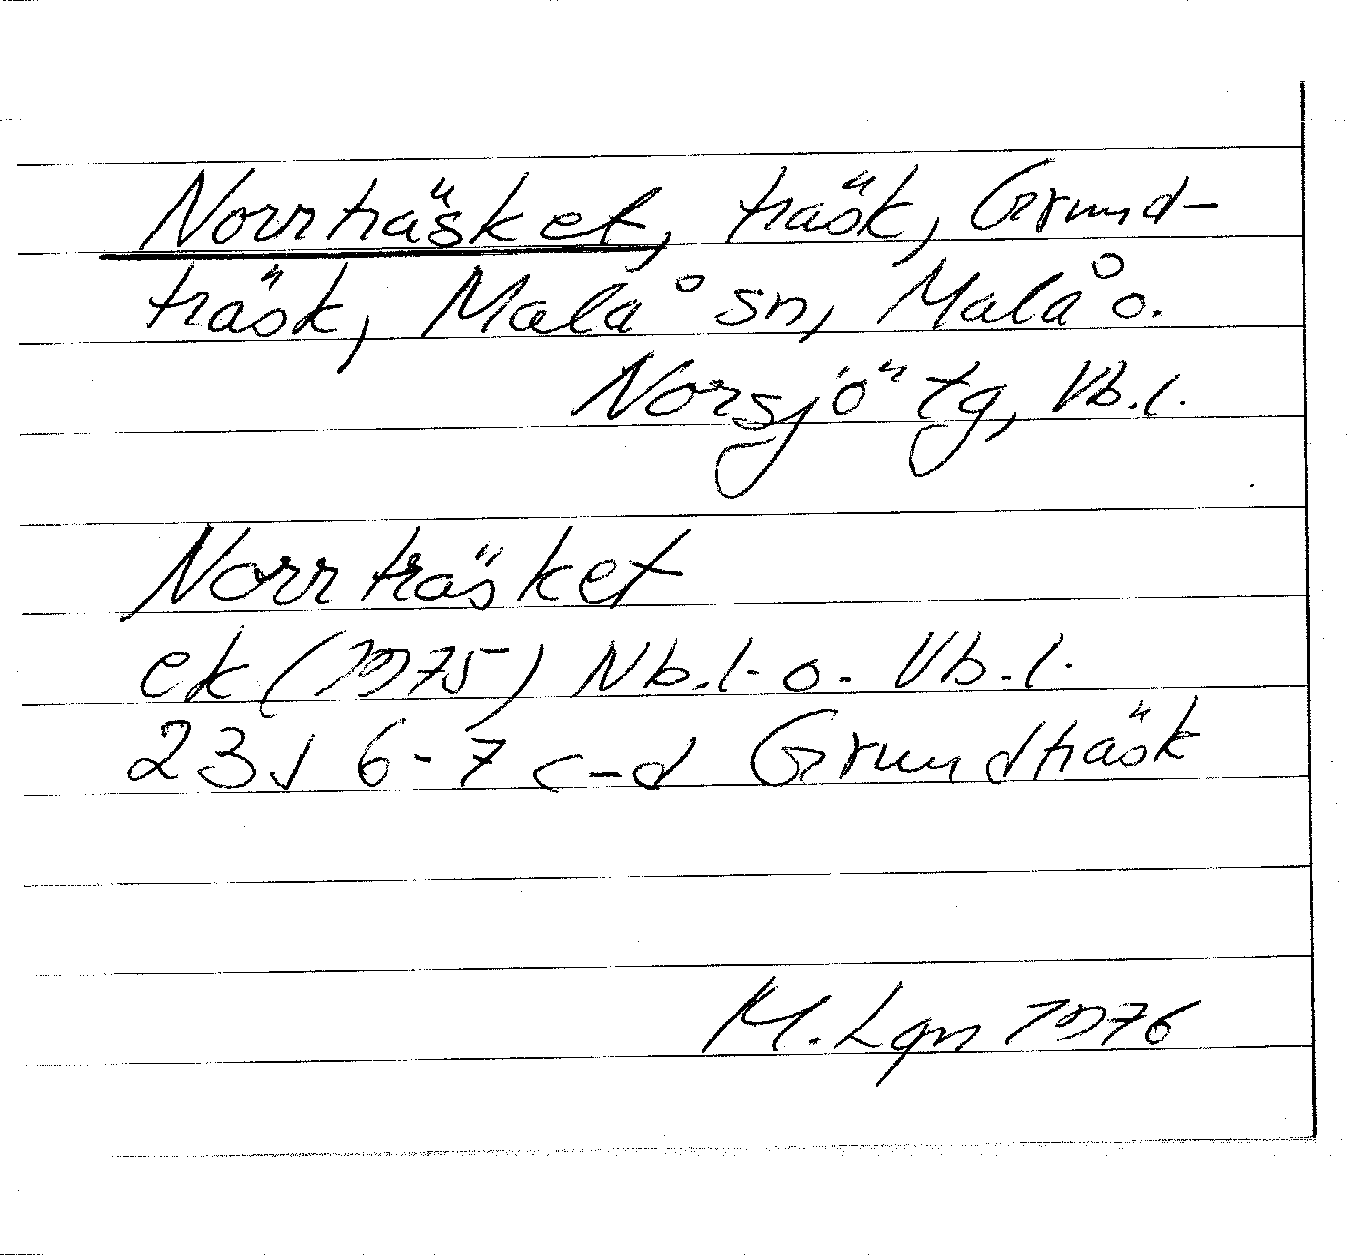 Norrträsket, träsk, Grund-
träsk, Malå sn, Malå o.
Norsjö tg, Vb.l.
Norrträsket
ek (1975) Nb.l. o. Vb.l.
23J 6-7 c-d Grundträsk
M. Lgn 1976